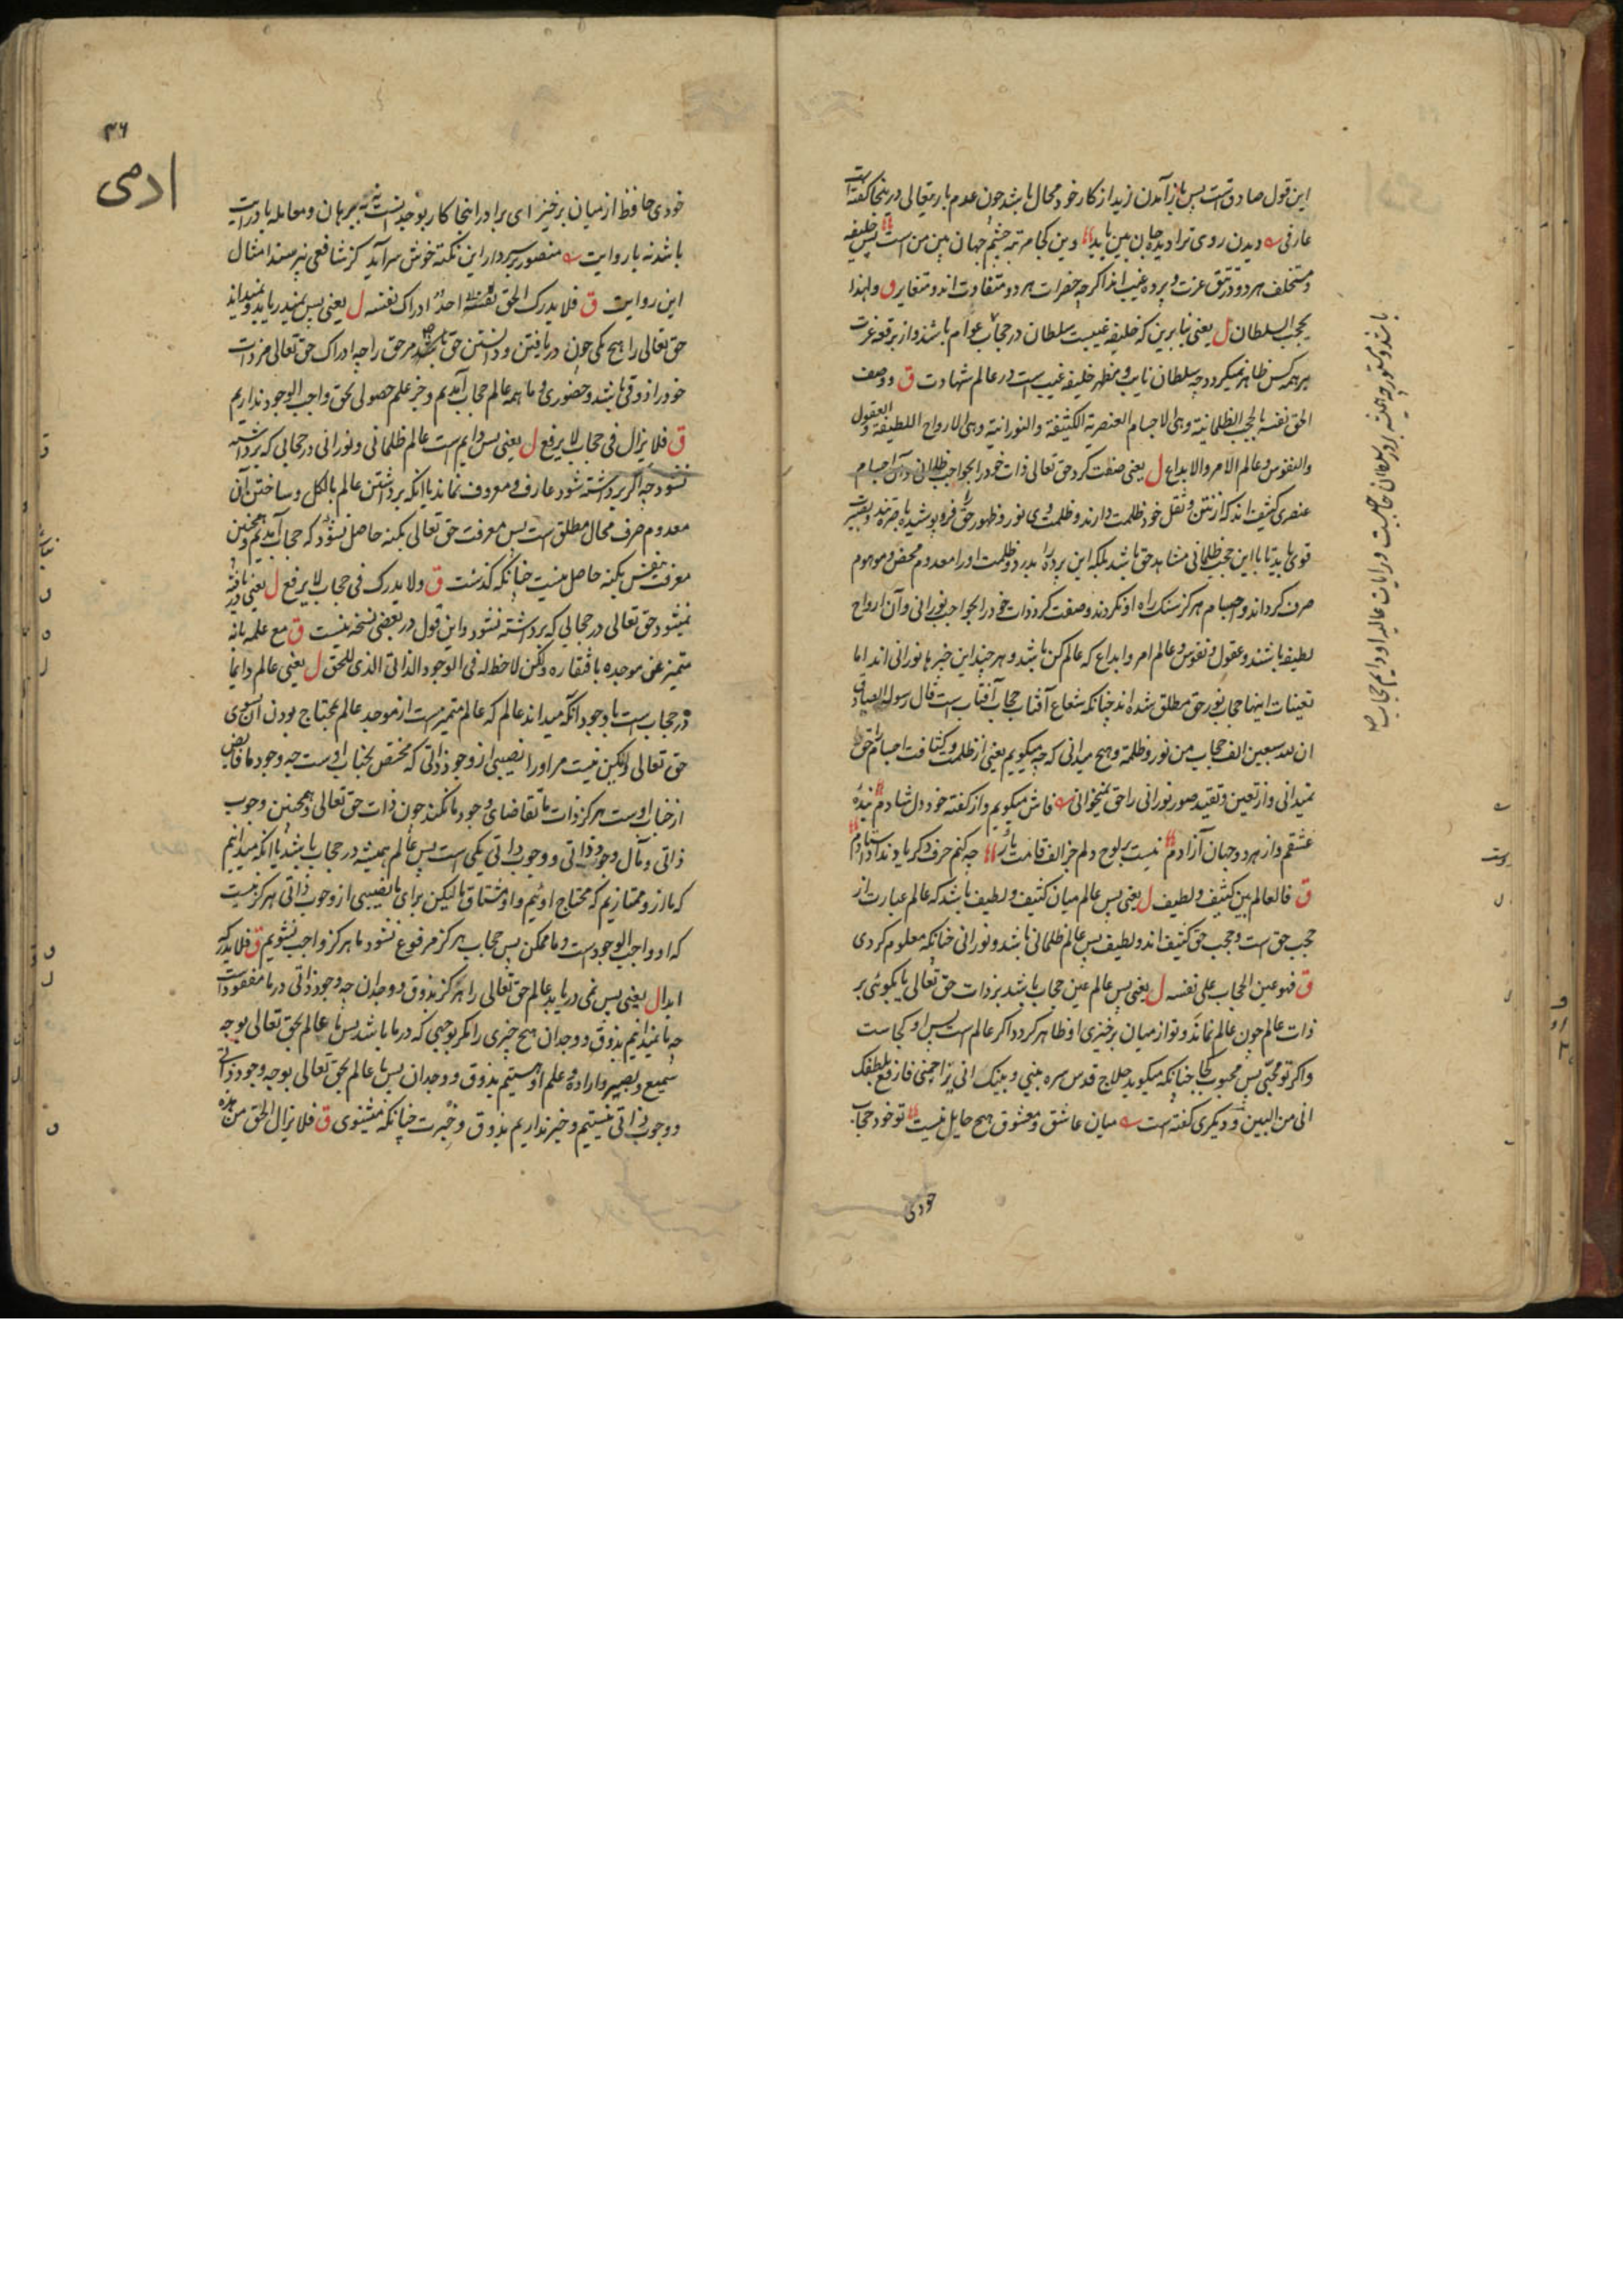 این قول صادقست پس باز آمدن زید از کار خود محال باشد چون عدم باریتعالی در ینجا گفته است
عارفی دیدن روی ترا دیده جان بین باید وین کجا مرتبه چشم جهان بین من است پس خلیفه
و مستخلف هر دو در تتق عزت و پرده غیب اند اگرچه حضرات هر دو متفاوت اند و متغایر ق ولهذا
یحجب السلطان ل یعنی بنا برین که خلیفه غیبست سلطان در حجاب عوام باشد و از برقع عزت
بر همه کس ظاهر نمیگردد چه سلطان نایب و مظهر خلیفه غیب است در عالم شهادت ق ووصف
الحق نفسه بالحجب الظلمانیة وهی الاجسام العنصریة الکثیفة والنورانیة وهی الارواح اللطیفة والعقول
والنفوس وعالم الامر والابداع ل یعنی صفت کرد حق تعالی ذات خود را بحواجب ظلمانی و آن اجسام
عنصری کثیف اند که از تن و ثقل خود ظلمت دارند و ظلمت وی نور و ظهور حق را فرو پوشیده
قوی باید تا با این حجب ظلمانی مشاهد حق باشد بلکه این پرده را بدرد و ظلمت او را معدوم محض و موهوم
صرف گرداند و اجسام هرگز سنک راه او نکردند و صفت کرد ذات خود را بحواجب نورانی و آن ارواح
لطیفه باشند و عقول و نفوس و عالم امر و ابداع که عالم کن باشد و هر چند این چیزها نورانی اند اما
تعینات اینها حجاب نور حق مطلق شده اند چنانکه شعاع آفتاب حجاب آفتاب است قال رسوله
ان لله سبعین الف حجاب من نور و ظلمة و هیچ میدانی که چه میکویم یعنی از ظلمت و کثافت اجسام را حق
نمیدانی و از تعین و تقید صور نورانی را حق نمیخوانی فاش میکویم و از کفته خود دل شادم بنده
عشقم و از هر دو جهان آزادم نیست بر لوح دلم جز الف قامت یار چه کنم حرف دکر یاد نداد استادم
ق فالعالم بین کثیف ولطیف ل یعنی پس عالم میان کثیف و لطیف باشد که عالم عبارت از
حجب حق است و حجب حق کثیف اند و لطیف پس عالم ظلمانی باشد و نورانی چنانکه معلوم کردی
ق فهو عین الحجاب علی نفسه ل یعنی پس عالم عین حجاب باشد بر ذات حق تعالی یا بکوئی بر
ذات عالم چون عالم نماند و تو از میان برخیزی او ظاهر کردد اکر عالم است پس او کجاست
واکر تو محبّی پس محبوب کجا چنانکه میکوید حلاج قدس سره بینی و بینک انی یزاحمنی فارفع بلطفک
انی من البین و دیکری کفته است میان عاشق و معشوق هیچ حایل نیست تو خود حجاب
خودی
باشد و مستور چه همیشه بر در سلطان حاجبست در ایات عالیه او دایم حجاب
۳۶
ادمی
خودی حافظ از میان برخیز ای برادر اینجا کار بوجدانست نه ببرهان و معامله با درایت
باشد نه با روایت منصور بر سر دار این نکته خوش سراید کز شافعی نپرسند امثال
این روایت ق فلا یدرک الحق نفسه احد ادراک نفسه ل یعنی پس نمیدریابد و نمیداند
حق تعالی را هیچ یکی چون دریافتن و دانستن حق تعالی مر حق را چه ادراک حق تعالی مر ذات
خود را ذوقی باشد و حضوری و ما همه عالم حجاب آمدیم و جز علم حصولی بحق واجب الوجود نداریم
ق فلا یزال فی حجاب لا یرفع ل یعنی پس دایم است عالم ظلمانی و نورانی در حجابی که برداشته
نشود چه اکر برداشته شود عارف و معروف نماند با آنکه برداشتن عالم بالکل و ساختن آن
معدوم صرف محال مطلق است پس معرفت حق تعالی بکنه حاصل نشود که حجاب آمدیم و همچنین
معرفت نفس بکنه حاصل نیست چنانکه کذشت ق ولا یدرک فی حجاب لا یرفع ل یعنی دریافته
نمیشود حق تعالی در حجابی که برداشته نشود و این قول در بعضی نسخه نیست ق مع علمه بانه
متمیز عن موجده بافتقاره ولکن لا حظ له فی الوجود الذاتی الذی للحق ل یعنی عالم دایما
در حجاب است با وجود آنکه میداند عالم که عالم متمیز است از موجد عالم بمحتاج بودن آن بسوی
حق تعالی ولیکن نیست مر او را نصیبی از وجود ذاتی که مختص بجناب اوست چه وجود ما فایض
از جناب اوست هرکز ذات ما تقاضای وجود ما نکند چون ذات حق تعالی و همچنین وجوب
ذاتی و مآل وجود ذاتی و وجوب ذاتی یکی است پس عالم همیشه در حجاب باشد با آنکه میدانیم
که ما ازو ممتازیم که محتاج اوئیم و او مشتاق ما لیکن برای ما نصیبی از وجوب ذاتی هرکز نیست
که او واجب الوجود است و ما ممکن پس حجاب هرکز مرفوع نشود ما هرکز واجب نشویم ق فلا یدرکه
ابدا ل یعنی پس نمی دریابد عالم حق تعالی را هرکز بذوق و وجدان چه وجود ذاتی در ما مفقود است
چه ما نمیدانیم بذوق و وجدان هیچ چیزی را مکر بوجهی که در ما باشد پس ما عالم بحق تعالی بوجه
سمیع و بصیر و اراده و علم او هستیم بذوق و وجدان پس ما عالم بحق تعالی بوجه وجود ذاتی
و وجوب ذاتی نیستیم و خبر نداریم بذوق و خبرت چنانکه میشنوی ق فلا یزال الحق من هذه